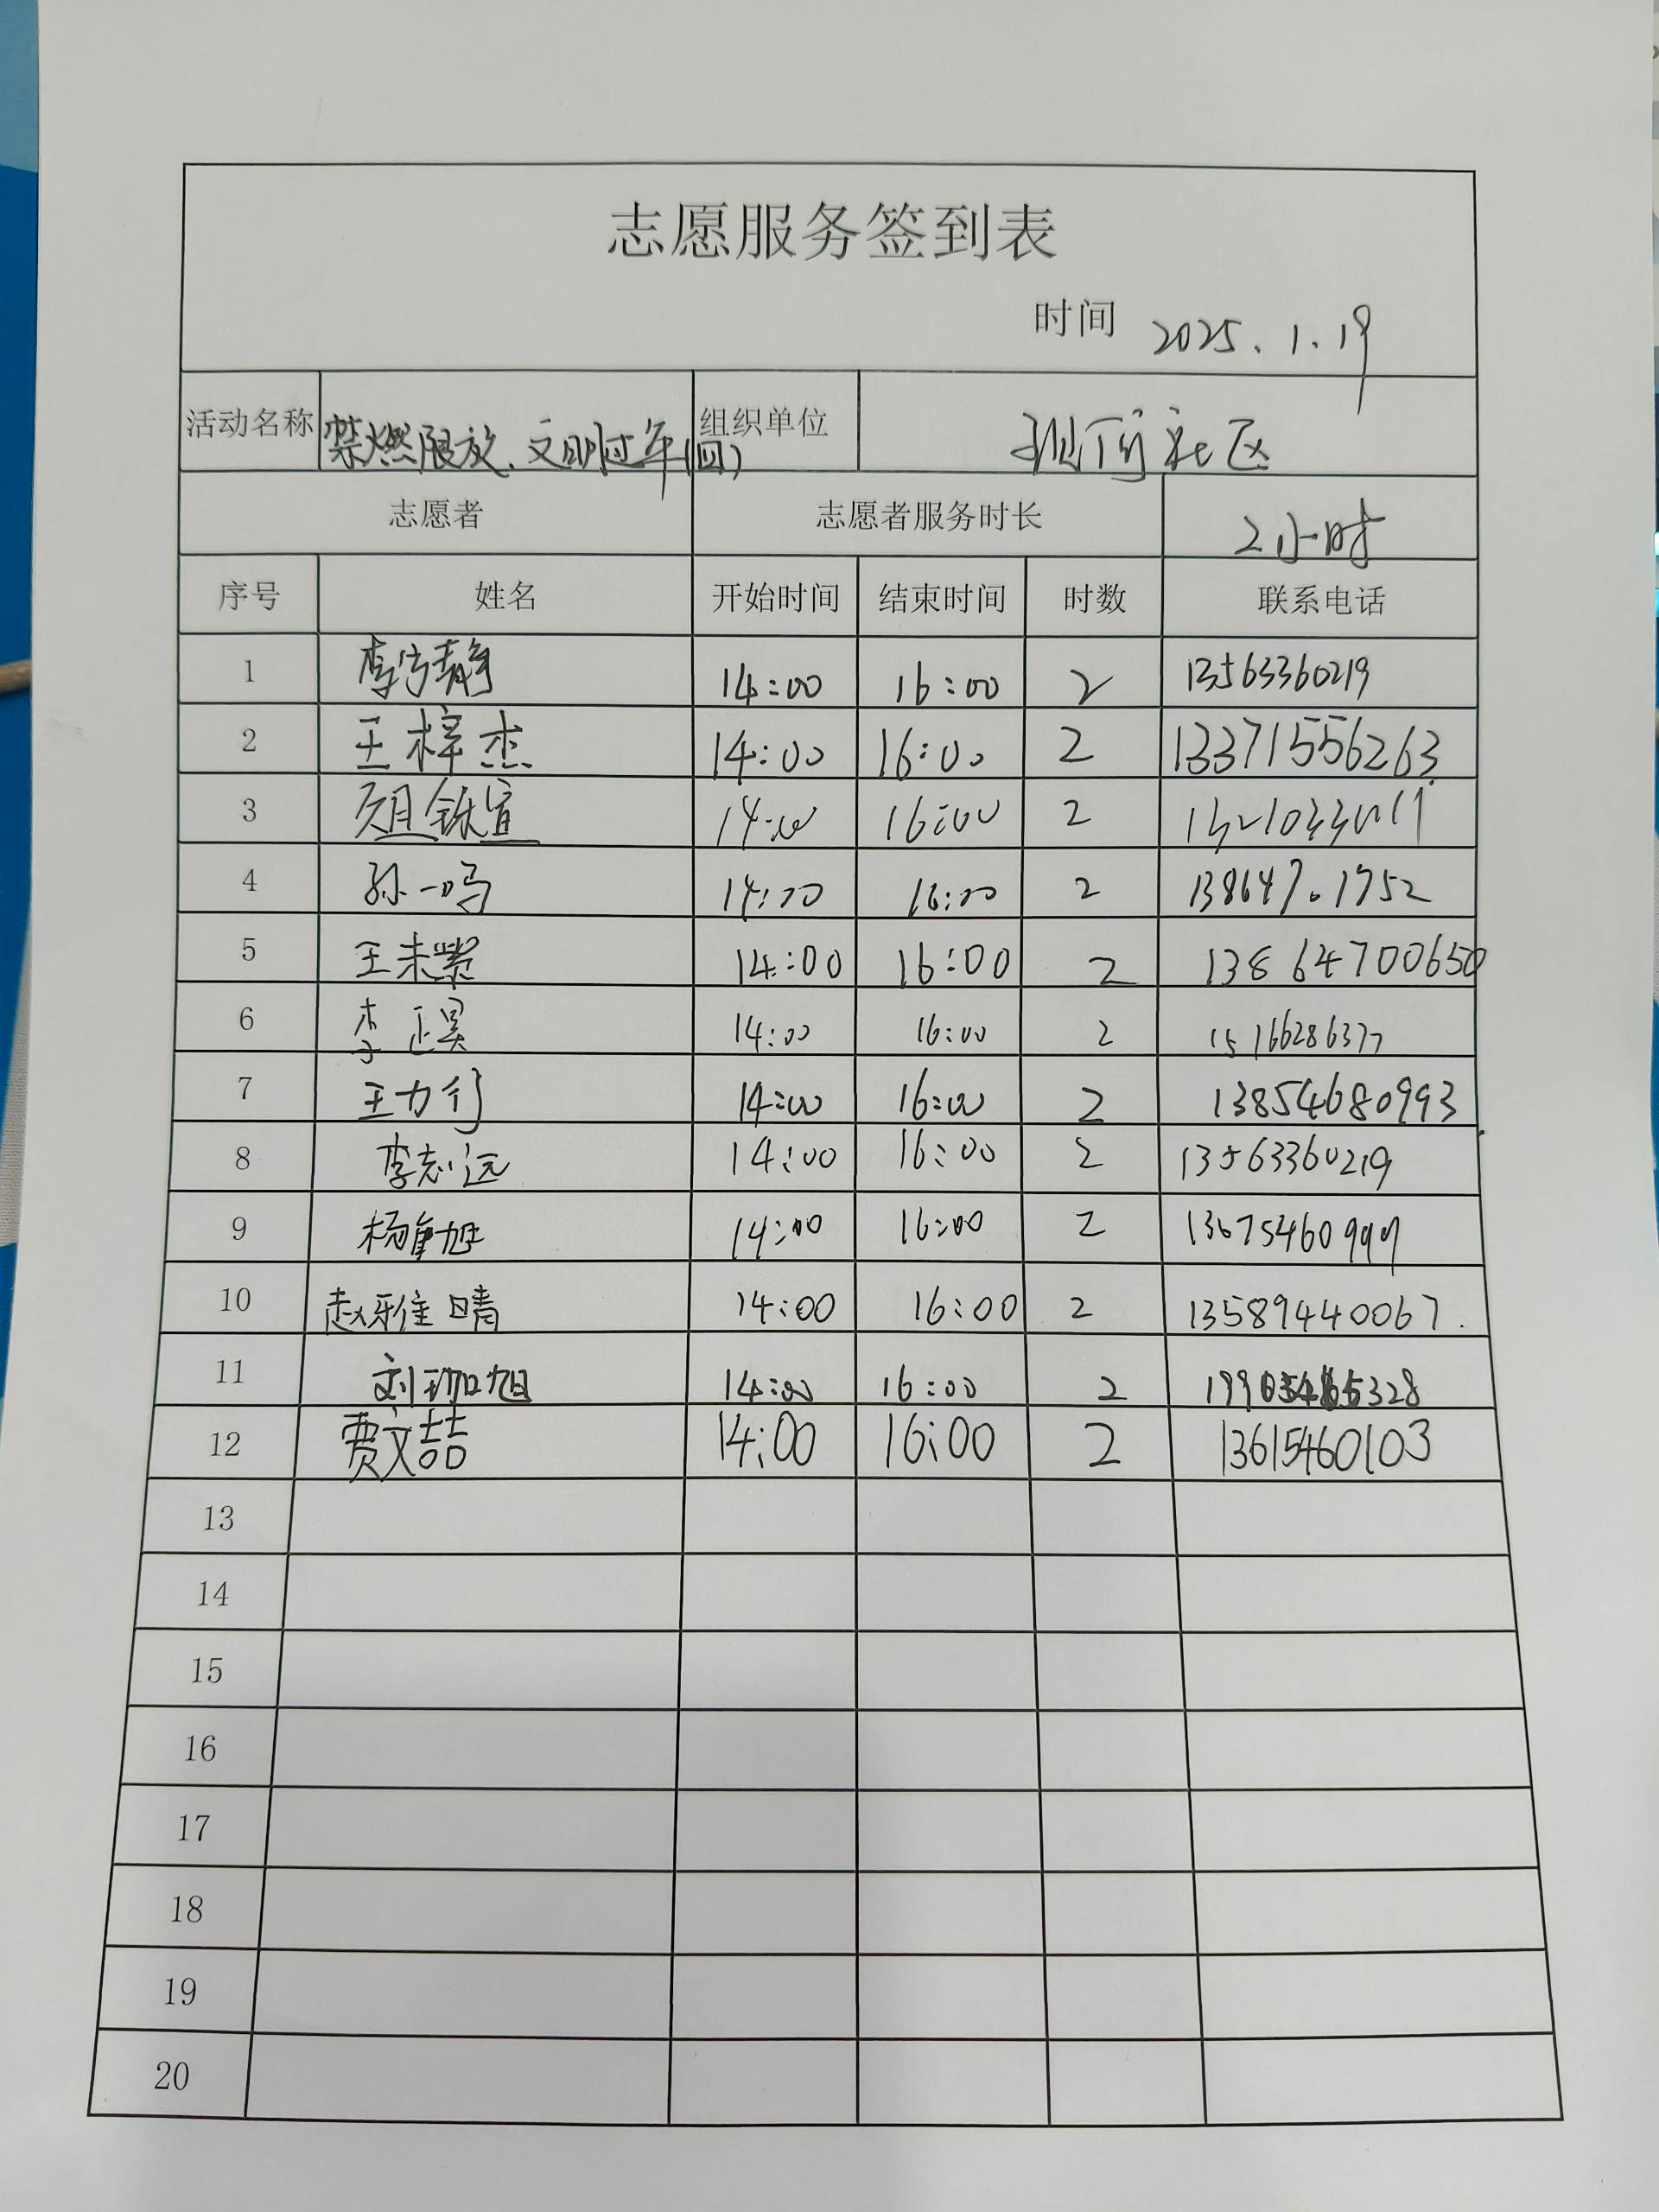 志愿服务签到表
时间 2025.1.19
活动名称 禁燃限放、文明过年(四) 组织单位 社区
志愿者 志愿者服务时长 2小时
序号 姓名 开始时间 结束时间 时数 联系电话
1 李宁静 14:00 16:00 2 13563360219
2 王梓杰 14:00 16:00 2 13371556263
3 14:00 16:00 2
4 孙一鸣 14:00 16:00 2 13864701752
5 王未 14:00 16:00 2 13864700650
6 李正昊 14:00 16:00 2 15166286377
7 王力行 14:00 16:00 2 13854680993
8 李志远 14:00 16:00 2 13563360219
9 杨 旭 14:00 16:00 2
10 赵雅晴 14:00 16:00 2 13589440067.
11 刘珈旭 14:00 16:00 2
12 贾文喆 14:00 16:00 2 13615460103
13
14
15
16
17
18
19
20